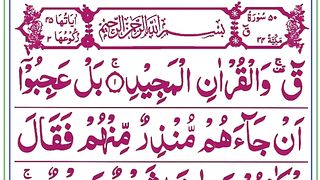 ٥٠ سُوْرَةُ قٓ مَكِّيَّةٌ ٣٤
بِسْمِ اللّٰهِ الرَّحْمٰنِ الرَّحِيْمِ
اٰيَاتُهَا ٤٥ رُكُوْعُهَا ٣
قٓ ۚ وَالْقُرْاٰنِ الْمَجِيْدِ ۚ ١ بَلْ عَجِبُوْۤا
اَنْ جَآءَهُمْ مُّنْذِرٌ مِّنْهُمْ فَقَالَ